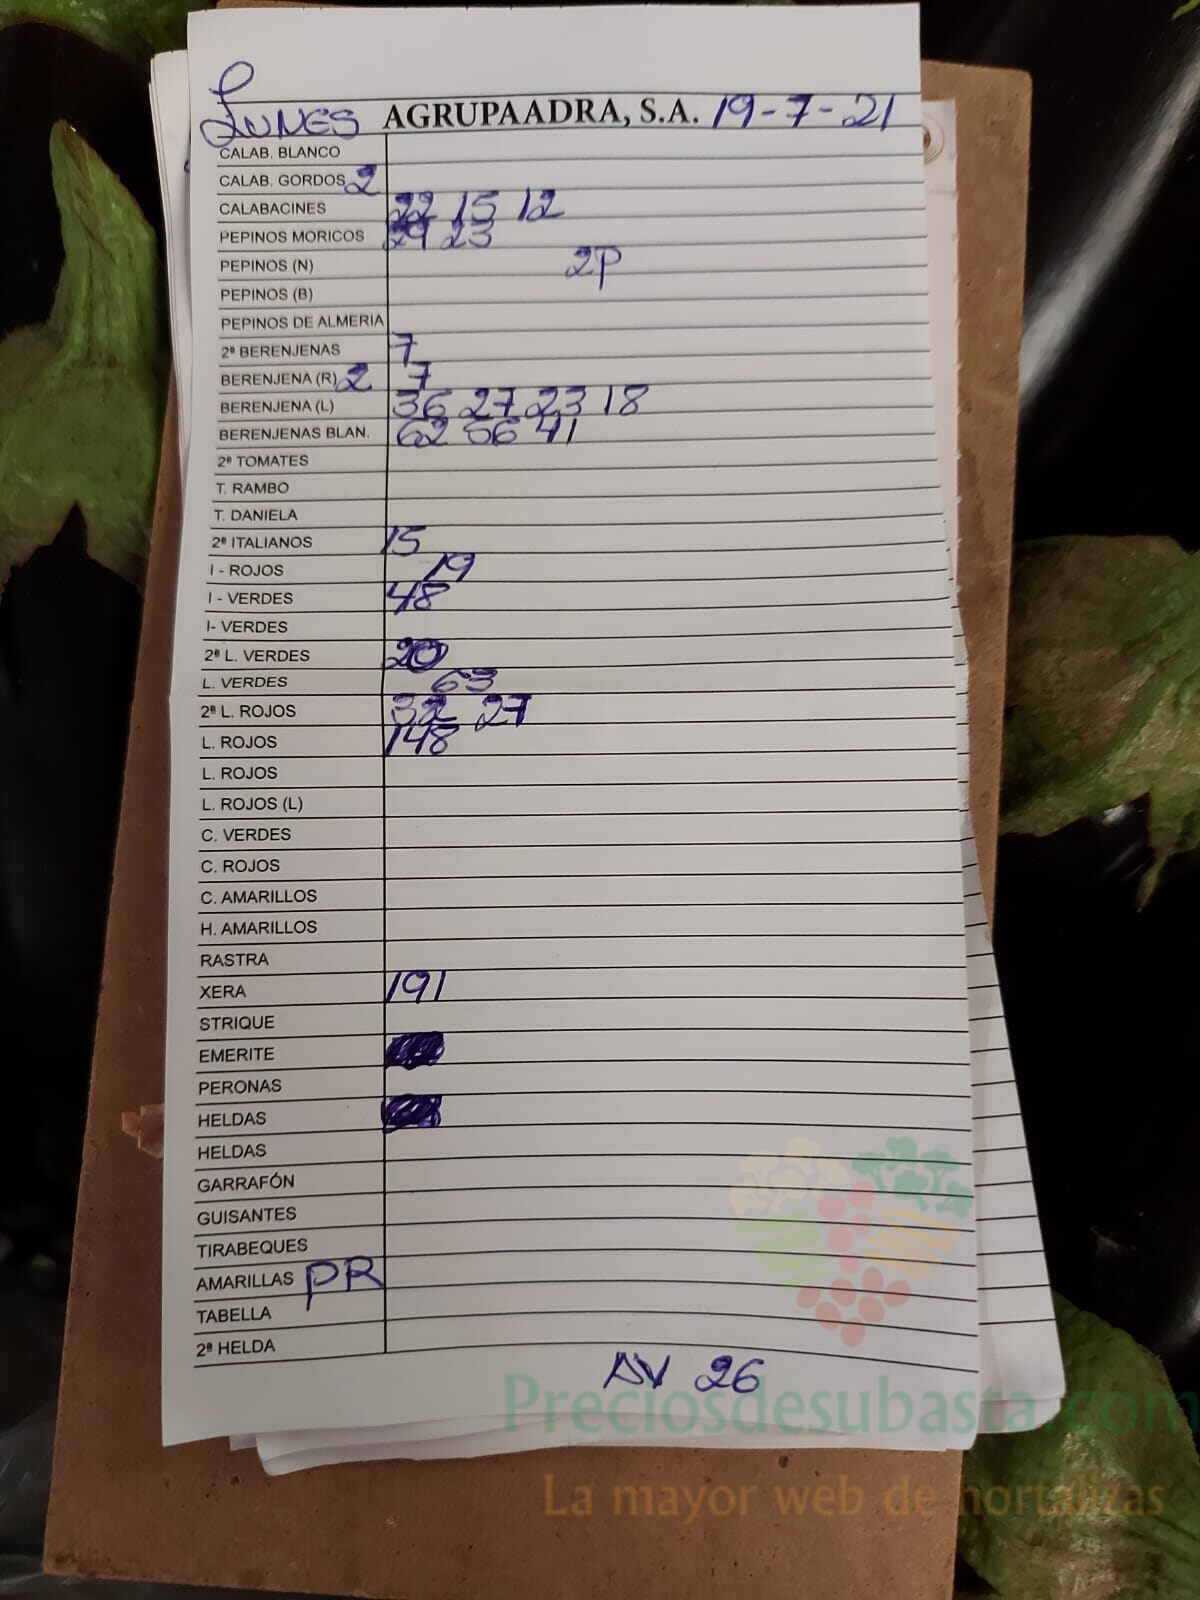 LUNES AGRUPAADRA, S.A. 19-7-21
CALAB. BLANCO
CALAB. GORDOS 2
CALABACINES 22 15 12
PEPINOS MORICOS 29 23
PEPINOS (N) 2P
PEPINOS (B)
PEPINOS DE ALMERIA
2ª BERENJENAS 7
BERENJENA (R) 2 7
BERENJENA (L) 36 27 23 18
BERENJENAS BLAN. 62 56 41
2ª TOMATES
T. RAMBO
T. DANIELA
2ª ITALIANOS 15
I - ROJOS 19
I - VERDES 48
I- VERDES
2ª L. VERDES 20
L. VERDES 63
2ª L. ROJOS 32 27
L. ROJOS 148
L. ROJOS
L. ROJOS (L)
C. VERDES
C. ROJOS
C. AMARILLOS
H. AMARILLOS
RASTRA
XERA 191
STRIQUE
EMERITE
PERONAS
HELDAS
HELDAS
GARRAFÓN
GUISANTES
TIRABEQUES
AMARILLAS PR
TABELLA
2ª HELDA
AV 26
Preciosdesubasta.com
La mayor web de hortalizas